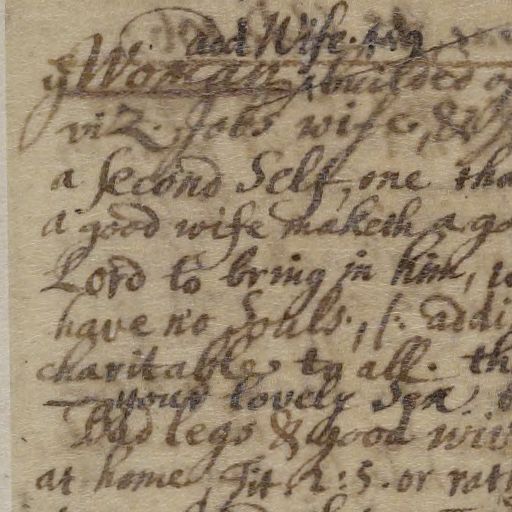 add Wife.
yͤ Woman, builded
viz. Jobs wife, &
a second Self, one tha
a good wife maketh a go
Lord to bring in him,
have no Souls., /: addi
charitable to all. th
your lovely Sex
Bad legs & good wiv
at home Tit. 2:5. or rat